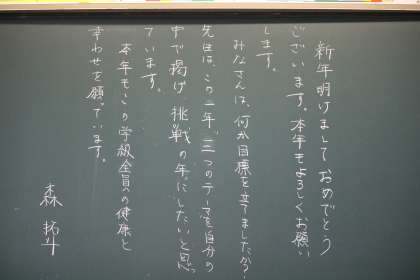 新年明けましておめでとう
ございます。本年もよろしくお願い
します。
みなさんは、何か目標を立てましたか?
先生は、この一年、三つのテーマを自分の
中で掲げ、挑戦の年にしたいと思っ
ています。
本年もこの学級全員の健康と
幸わせを願っています。
森 拓斗